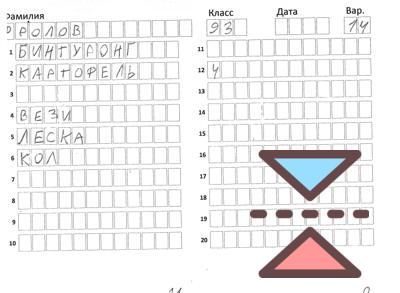 Фамилия
РОЛОВ
1 БИНТУРОНГ
2 КАРТОФЕЛЬ
3
4 ВЕЗИ
5 ЛЕСКА
6 КОЛ
7
8
9
10
Класс Дата Вар.
93 14
11
12 4
13
14
15
16
17
18
19
20